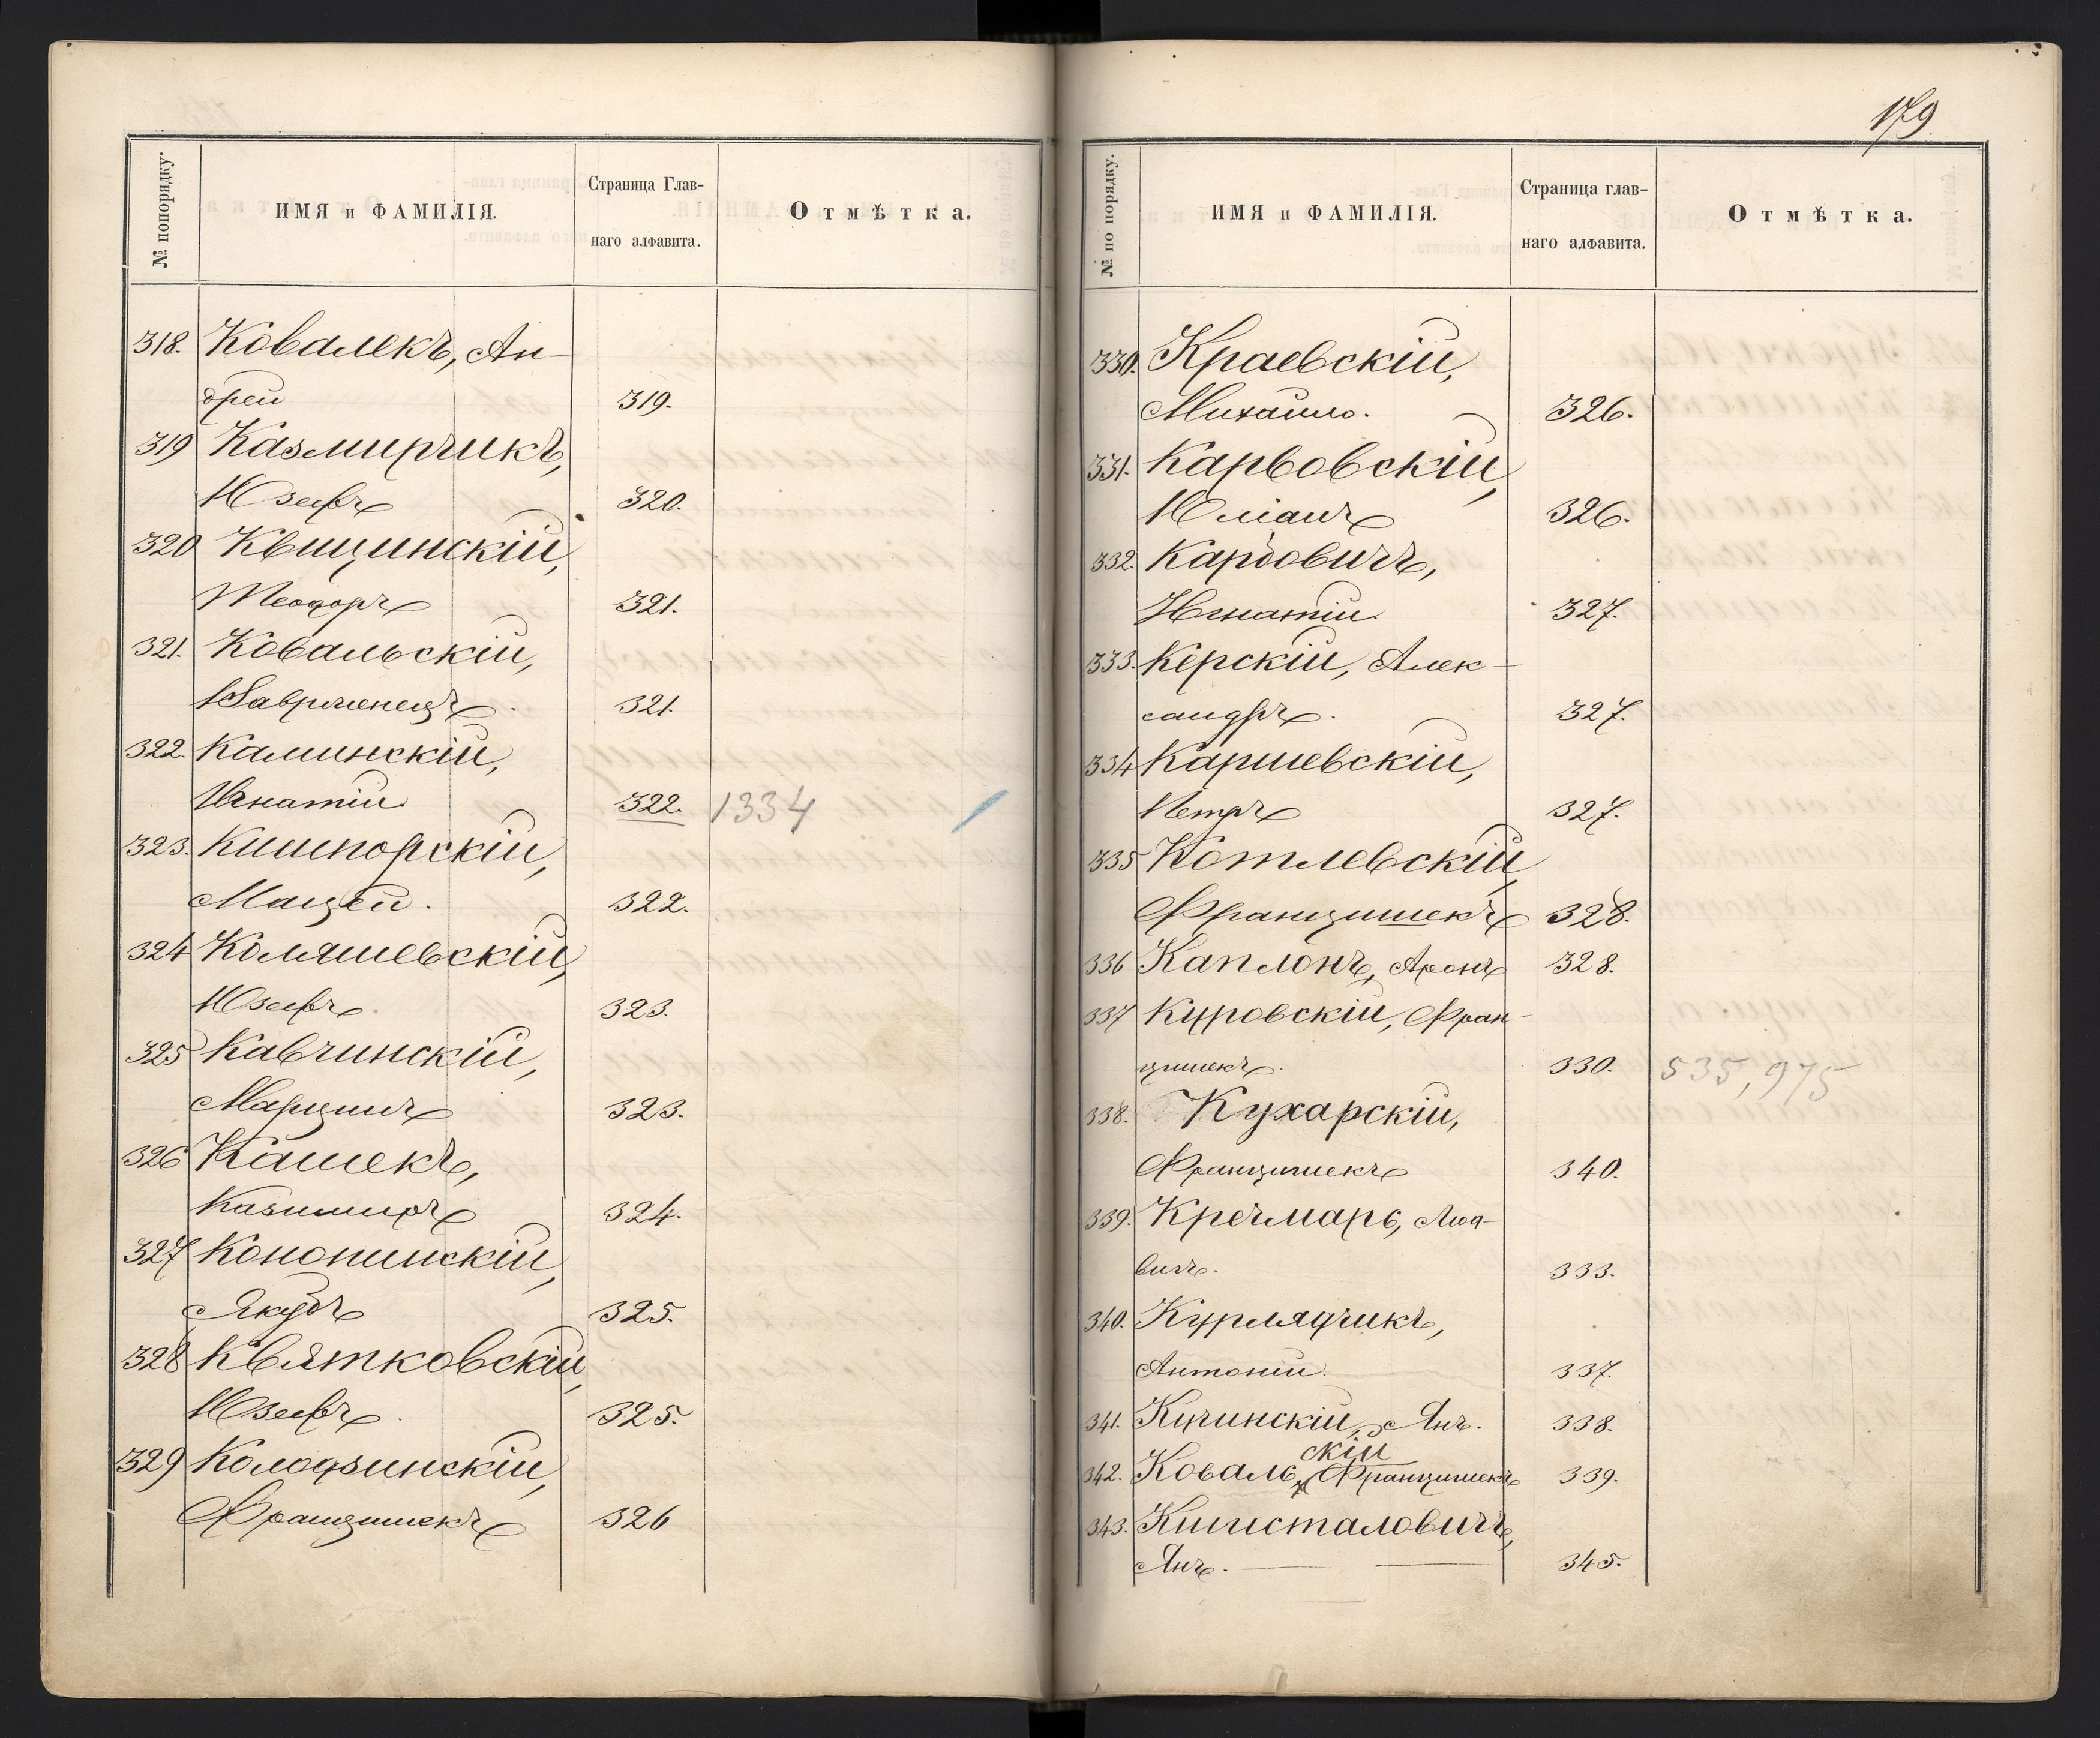 № попорядку.
ИМЯ и ФАМИЛІЯ.
Страница Глав-
наго алфавита.
Отмѣтка.
318. Ковалекъ, Ан-
дрей 319.
319 Казмирчикъ,
Юзефъ 320.
320 Квицинскій,
Теодоръ 321.
321. Ковальскій,
Ваврженецъ. 321.
322. Каминскій,
Игнатій 322. 1334
323. Кишпорскій,
Мацей. 322.
324 Коляшевскій,
Юзефъ 323.
325 Кавчинскій,
Марцинъ 323.
326 Кашекъ,
Казимиръ 324.
327 Кононинскій,
Якубъ 325.
328 Квятковскій,
Юзефъ. 325.
329 Колодзинскій,
Францишекъ 326
179
№ по порядку.
ИМЯ и ФАМИЛІЯ.
Страница глав-
наго алфавита.
Отмѣтка.
330. Краевскій,
Михайло. 326.
331. Карвовскій,
Юліанъ 326.
332. Карбовичъ,
Игнатій. 327.
333. Керскій, Алек-
сандръ. 327.
334 Каршевскій,
Петръ 327.
335 Котлевскій,
Францишекъ 328.
336 Каплонъ, Аронъ 328.
337 Куровскій, Фран-
цишекъ. 330. 535, 975
338. Кухарскій,
Францишекъ 340.
339. Кречмаръ, Люд-
вигъ. 333.
340. Курлядчикъ,
Антоній. 337.
341. Кучинскій, Янъ. 338.
скій
342. Коваль, Францишекъ 339.
343. Кшисталовичъ,
Янъ. 345.